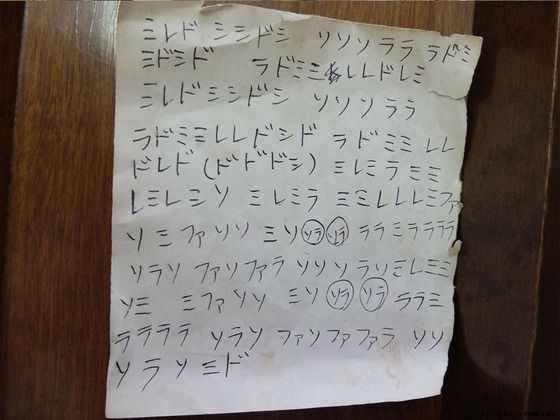 ミレド シシドシ ソソソララ ラドミ
ミドシド ラドミミ レレドレミ
ミレドシシドシ ソソソララ
ラドミミレレドシド ラドミミ レレ
ドレド(ドドドシ) ミレミラミミ
レミレミソ ミレミラ ミミレレレミファ
ソミファソソ ミソソラソラ ララミララララ
ソラソ ファソファラ ソソソラソミレミミ
ソミ ミファソソ ミソソラソラ ララミ
ララララ ソラソ ファソファファラ ソソ
ソラソ ミド